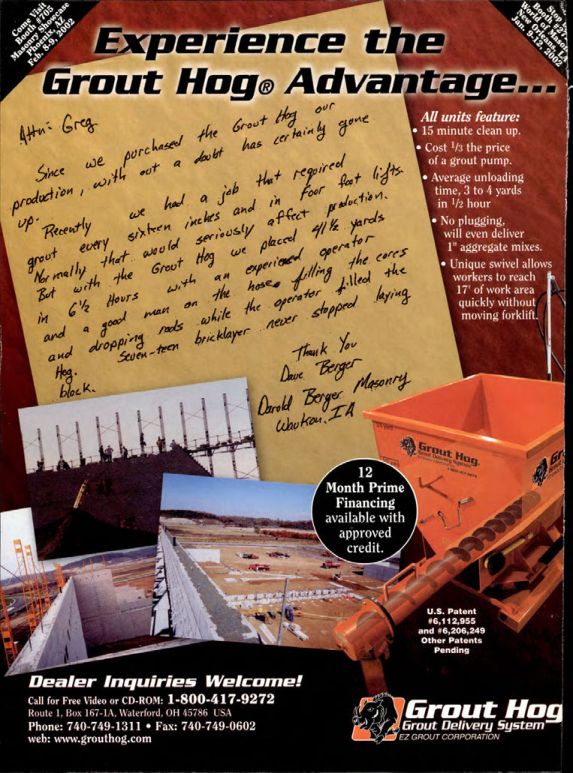 Come Visit
Booth #705
Masonry Showcase
Phoenix, AZ
Feb. 8-9, 2002
Stop
Booth #27
World of Mason
New Orleans, LA
Jan. 9-12, 2002
Experience the
Grout Hog® Advantage...
Attn: Greg
Since we purchased the Grout Hog our
production, with out a doubt has certainly gone
up.
Recently we had a job that required
grout every sixteen inches and in Foor foot lifts.
Normally that would seriously affect production.
But with the Grout Hog we placed 41½ yards
in 6½ Hours with an experienced operator
and a good man on the hose filling the cores
and dropping rods while the operator filled the
Hog. Seven-teen bricklayer never stopped laying
block.
Thank You
Dave Berger
Darold Berger Masonry
Waukon, IA
All units feature:
• 15 minute clean up.
• Cost 1/3 the price
of a grout pump.
• Average unloading
time, 3 to 4 yards
in 1/2 hour
• No plugging,
will even deliver
1" aggregate mixes.
• Unique swivel allows
workers to reach
17' of work area
quickly without
moving forklift.
12
Month Prime
Financing
available with
approved
credit.
Grout Hog
Grout Delivery System
U.S. Patent
#6,112,955
and #6,206,249
Other Patents
Pending
Dealer Inquiries Welcome!
Call for Free Video or CD-ROM: 1-800-417-9272
Route 1, Box 167-1A, Waterford, OH 45786 USA
Phone: 740-749-1311 • Fax: 740-749-0602
web: www.grouthog.com
Grout Hog
Grout Delivery System
EZ GROUT CORPORATION